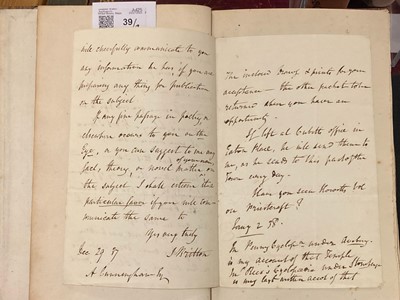 39/2
will cheerfully communicate to you
any information he has, if you are
preparing any thing for publication
on the subject
If any fine passage in poetry or
literature occurs to you on the
Eye, or you can suggest to me any
fact, theory, or novel matter
of your own
on the subject I shall esteem it a
particular favor if you will com-
municate the same to
Yrs very truly
J Britton
Dec 29 37
A Cunningham Esq
The inclosed & prints for your
acceptance – the other packet to be
returned when you have an
opportunity.
If left at Cubitt office in
Eaton Place, he will send them to
me, as he sends to this part of the
Town every day.
Have you seen
on Priestcraft?
Jany 2 38.
In Penny Cyclopa under Avebury,
is my account of that Temple
In Rees's Cyclopaedia under Stonehenge
is my last written accot of that